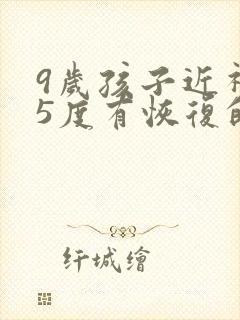 9歲孩子近
5度有恢復
纤城繪